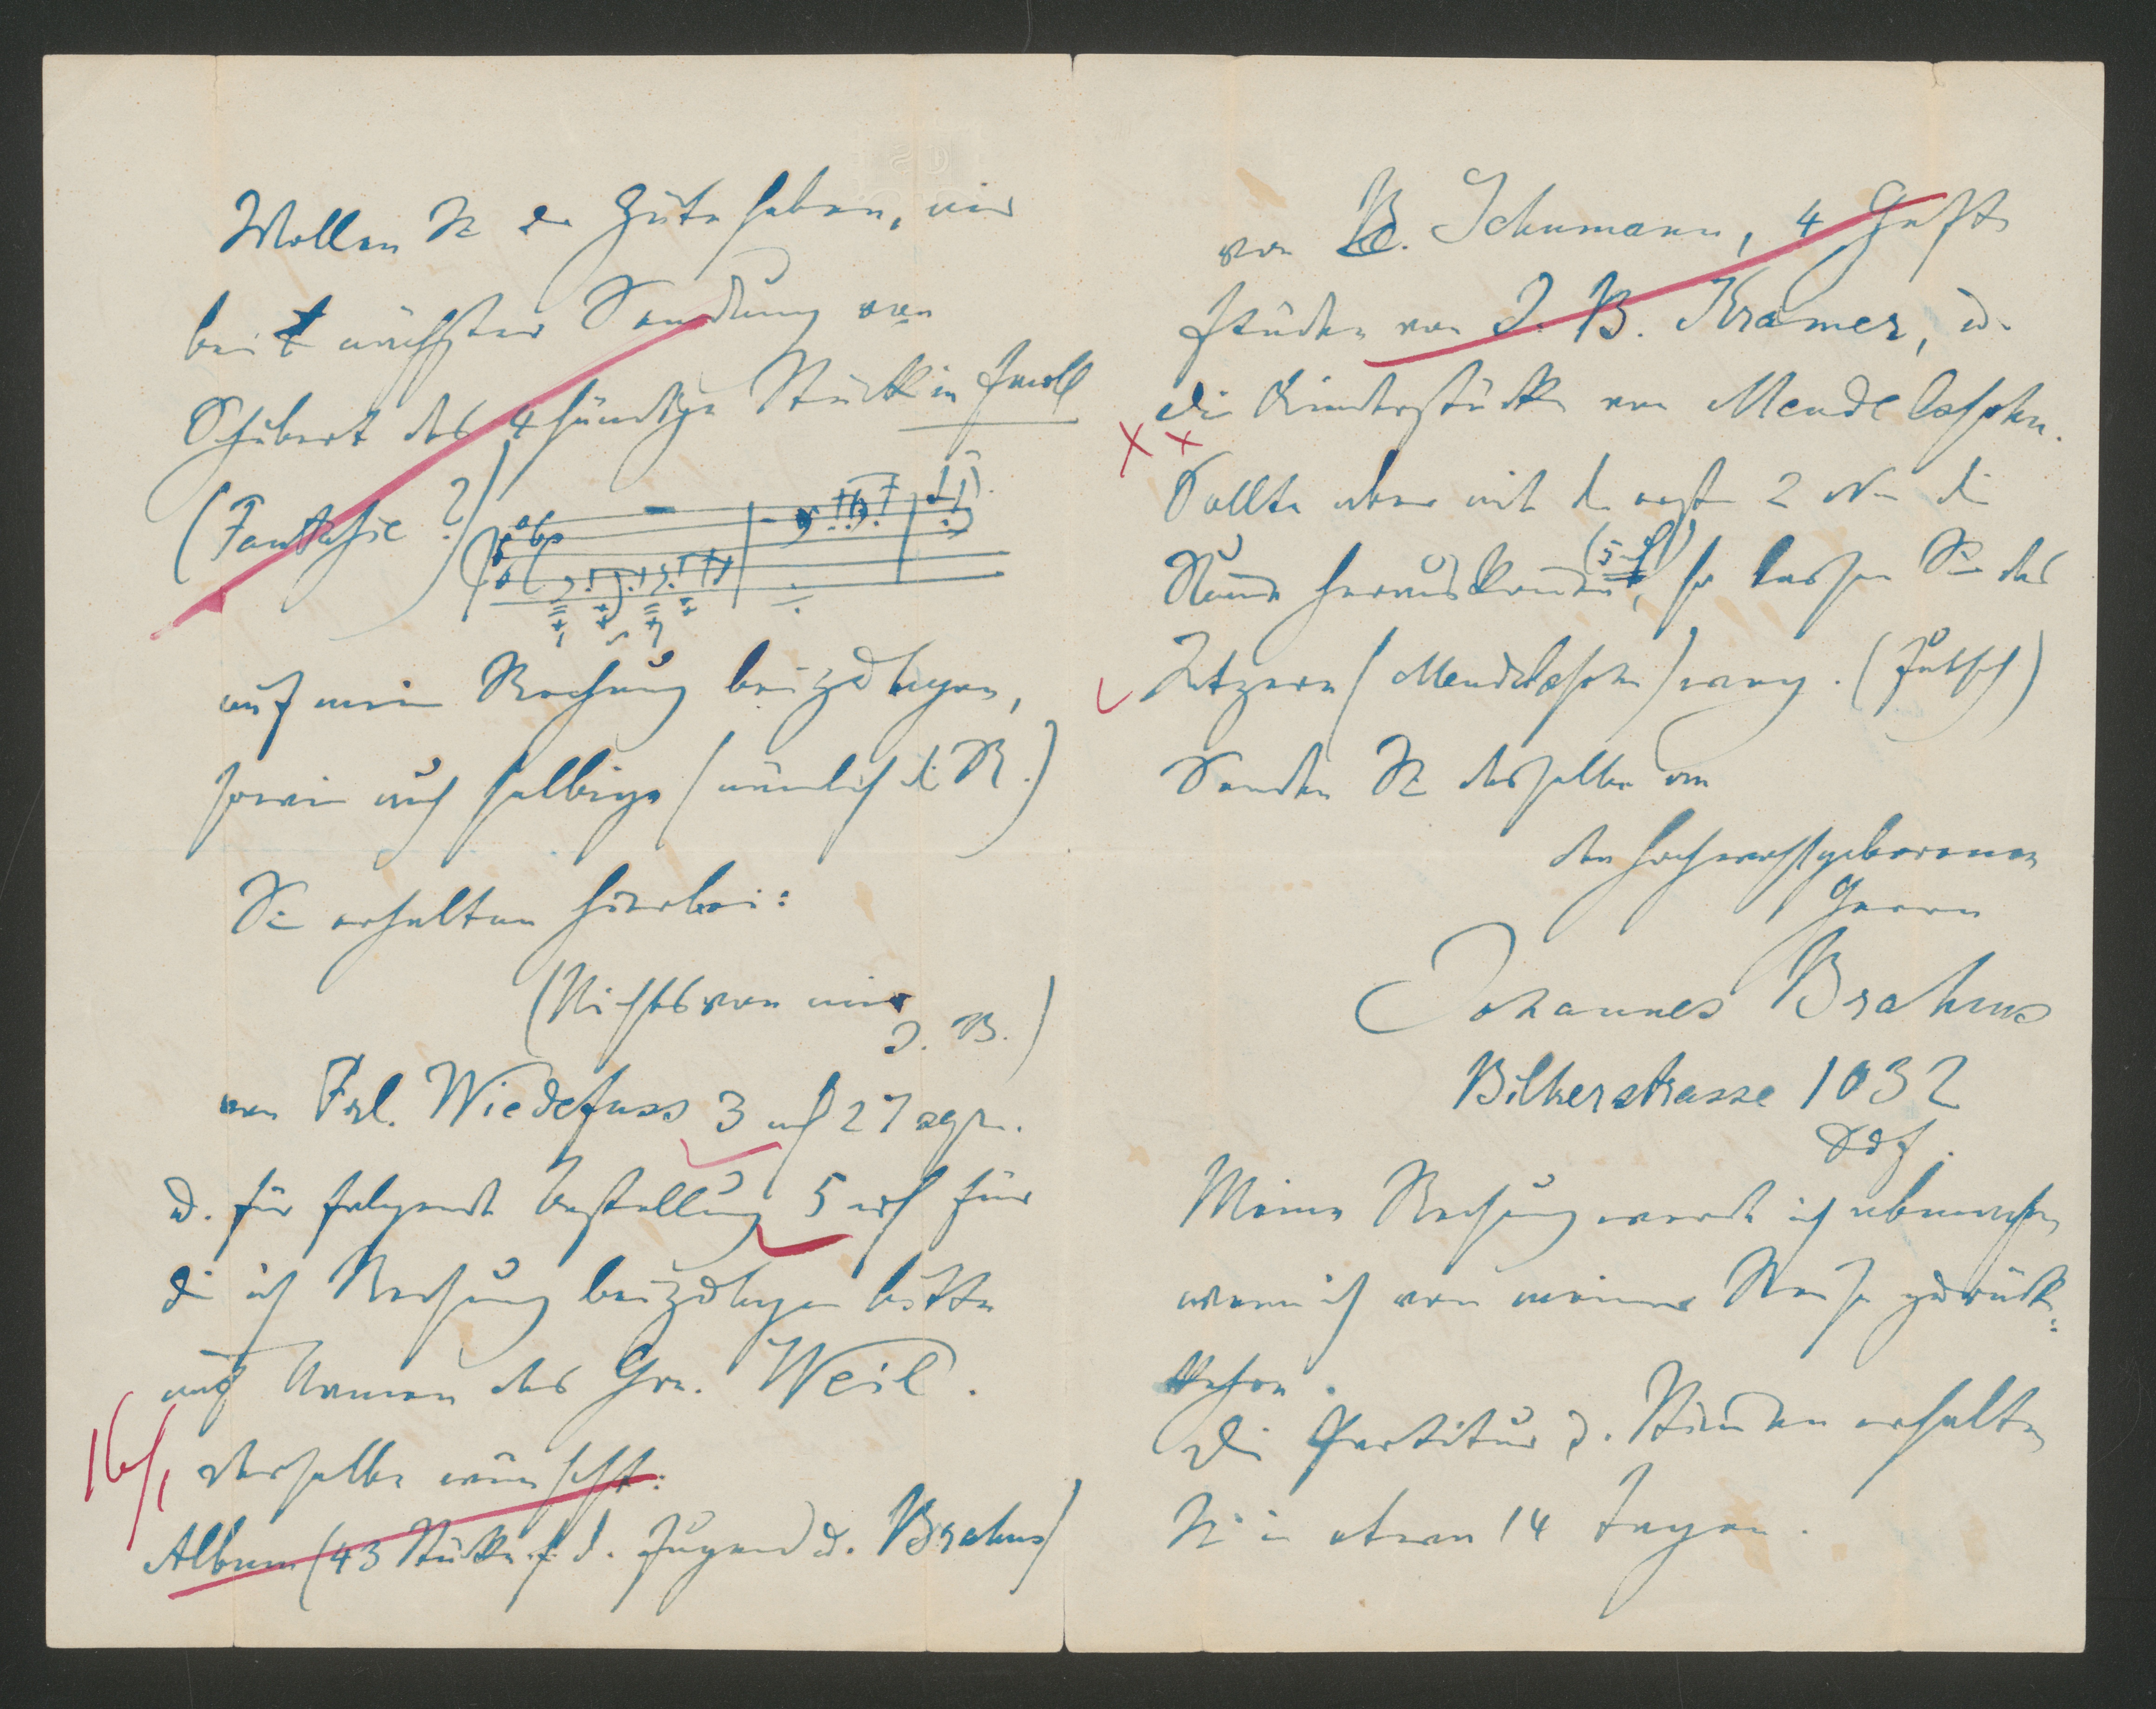 Wollen Sie die Güte haben, mir
bei nächster Sendung von
Schubert das 4händige Stück in Fmoll
(Fantasie?)
auf meine Rechnung beizulegen,
sowie auch selbige (nämlich d. R.)
Sie erhalten hierbei:
(Nichts von mir
J. B.)
von Frl. Wiedefuss 3 27 sgr.
u. für folgende Bestellung 5 für
die ich Rechnung beizulegen bitte
auf Namen des Hrn. Weil.
16/1 derselbe wünscht:
Album (43 Stücke f. d. Jugend u. Brahms)
von R. Schumann, 4 Hefte
Etüden von J. B. Kramer, u.
die Kinderstücke von Mendelssohn.
Sollte aber mit den ersten 2 die
Summe herauskommen (5), so lassen Sie das
Letztere (Mendelssohn) weg. (Hübsch)
Senden Sie dasselbe an
den hochwohlgeborenen
Herrn
Johannes Brahms
Bilkerstrasse 1032
Ddf.
Meine Rechnung werde ich abmachen
wenn ich von meiner Reise zurück-
kehre.
Die Partitur u. Stimmen erhalten
Sie in etwa 14 Tagen.